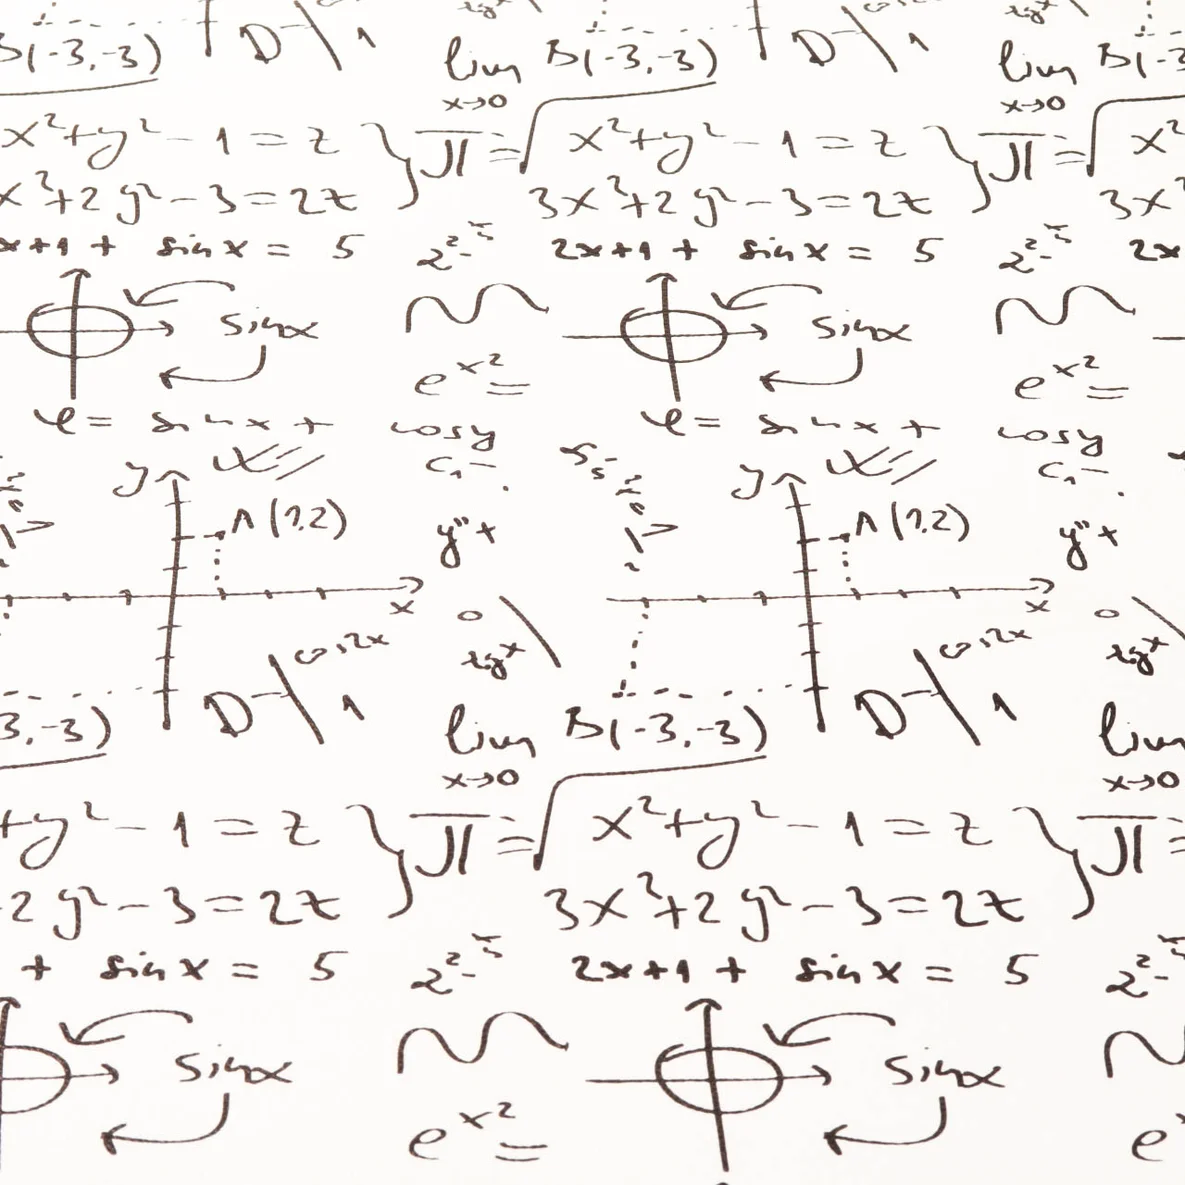 tgx
B(-3,-3) D 1 lim B(-3,-3) D 1 lim B(-3
x→0 x→0
x²+y²-1=z } π=√ x²+y²-1=z } π=√ x²
x²+2y²-3=2z 3x²+2y²-3=2z 3x²
x+1 + sin x = 5 2x+1 + sin x = 5 2x
sinx sinx
e^x²= e^x²=
φ= sin x + cosy φ= sin x + cosy
y c₁- y c₁-
A(1,2) y''+ A(1,2) y''+
x x
cos2x tgx cos2x tgx
3,-3) D 1 lim B(-3,-3) D 1 lim
x→0 x→0
+y²-1=z } π=√ x²+y²-1=z } π=
2y²-3=2z 3x²+2y²-3=2z
+ sin x = 5 2x+1 + sin x = 5
sinx sinx
e^x²= e